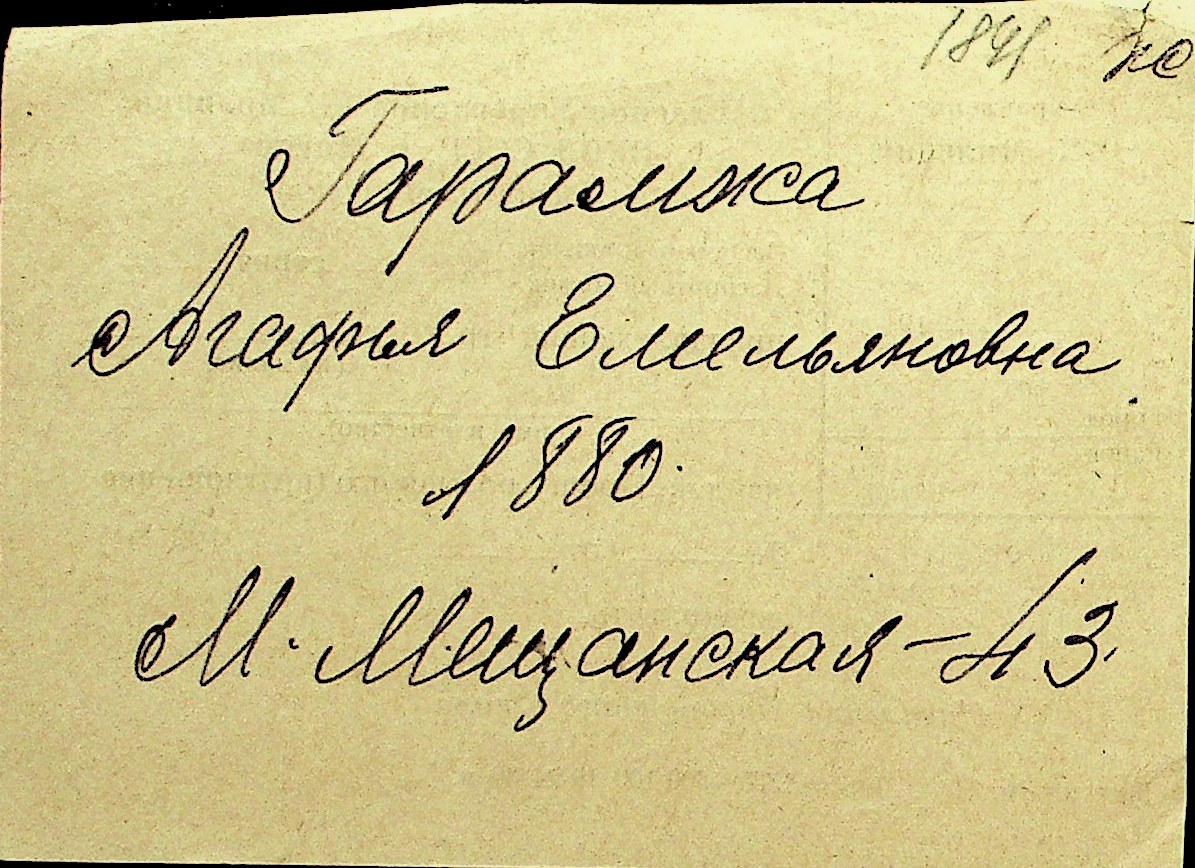 1841
Гарамжа
Агафья Емельяновна
1880.
М. Мещанская - 43.